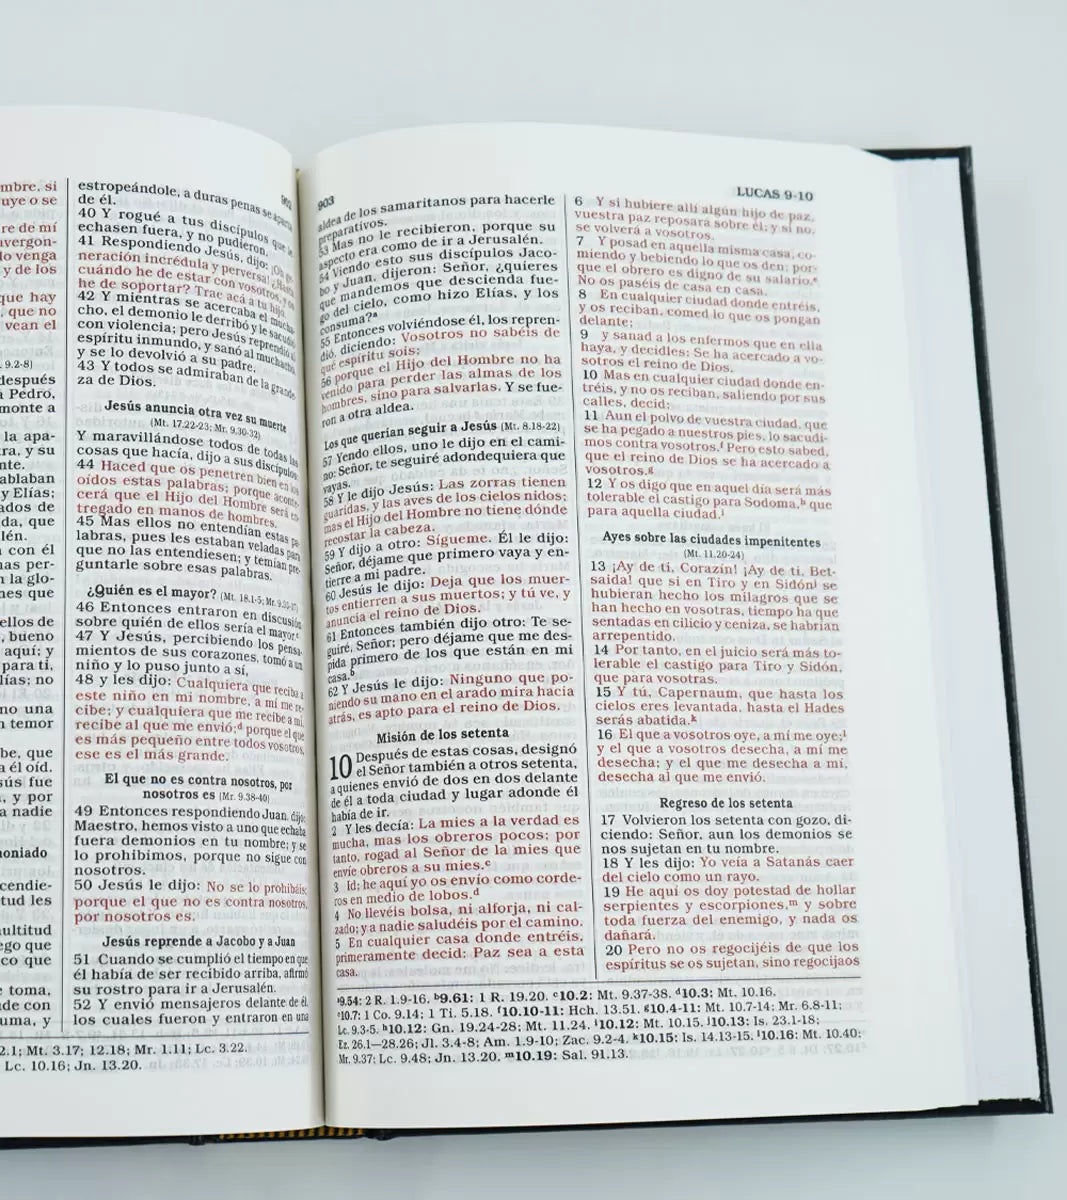 mbre, si
uye o se
re de mí
avergon-
do venga
y de los
que hay
, que no
vean el
. 9.2-8)
después
a Pedro,
monte a
la apa-
ra, y su
nte.
ablaban
y Elías;
ados de
da, que
lén.
a con él
nas per-
n la glo-
nes que
ellos de
, bueno
aquí; y
para ti,
lías; no
no una
n temor
be, que
a él oíd.
sús fue
, y por
a nadie
oniado
cendie-
itud les
ultitud
ego que
co que
e toma,
de con
uma, y
2.1; Mt. 3.17; 12.18; Mr. 1.11; Lc. 3.22.
Lc. 10.16; Jn. 13.20.
902
estropeándole, a duras penas se aparta
de él.
40 Y rogué a tus discípulos que le
echasen fuera, y no pudieron.
41 Respondiendo Jesús, dijo: ¡Oh ge-
neración incrédula y perversa! ¿Hasta
cuándo he de estar con vosotros, y os
he de soportar? Trae acá a tu hijo.
42 Y mientras se acercaba el mucha-
cho, el demonio le derribó y le sacudió
con violencia; pero Jesús reprendió al
espíritu inmundo, y sanó al muchacho,
y se lo devolvió a su padre.
43 Y todos se admiraban de la grande-
za de Dios.
Jesús anuncia otra vez su muerte
(Mt. 17.22-23; Mr. 9.30-32)
Y maravillándose todos de todas las
cosas que hacía, dijo a sus discípulos:
44 Haced que os penetren bien en los
oídos estas palabras; porque aconte-
cerá que el Hijo del Hombre será en-
tregado en manos de hombres.
45 Mas ellos no entendían estas pa-
labras, pues les estaban veladas para
que no las entendiesen; y temían pre-
guntarle sobre esas palabras.
¿Quién es el mayor? (Mt. 18.1-5; Mr. 9.33-37)
46 Entonces entraron en discusión
sobre quién de ellos sería el mayor.c
47 Y Jesús, percibiendo los pensa-
mientos de sus corazones, tomó a un
niño y lo puso junto a sí,
48 y les dijo: Cualquiera que reciba a
este niño en mi nombre, a mí me re-
cibe; y cualquiera que me recibe a mí,
recibe al que me envió;d porque el que
es más pequeño entre todos vosotros,
ese es el más grande.
El que no es contra nosotros, por
nosotros es (Mr. 9.38-40)
49 Entonces respondiendo Juan, dijo:
Maestro, hemos visto a uno que echaba
fuera demonios en tu nombre; y se
lo prohibimos, porque no sigue con
nosotros.
50 Jesús le dijo: No se lo prohibáis;
porque el que no es contra nosotros,
por nosotros es.
Jesús reprende a Jacobo y a Juan
51 Cuando se cumplió el tiempo en que
él había de ser recibido arriba, afirmó
su rostro para ir a Jerusalén.
52 Y envió mensajeros delante de él,
los cuales fueron y entraron en una
903
LUCAS 9-10
aldea de los samaritanos para hacerle
preparativos.
53 Mas no le recibieron, porque su
aspecto era como de ir a Jerusalén.
54 Viendo esto sus discípulos Jaco-
bo y Juan, dijeron: Señor, ¿quieres
que mandemos que descienda fue-
go del cielo, como hizo Elías, y los
consuma?a
55 Entonces volviéndose él, los repren-
dió, diciendo: Vosotros no sabéis de
qué espíritu sois;
56 porque el Hijo del Hombre no ha
venido para perder las almas de los
hombres, sino para salvarlas. Y se fue-
ron a otra aldea.
Los que querían seguir a Jesús (Mt. 8.18-22)
57 Yendo ellos, uno le dijo en el cami-
no: Señor, te seguiré adondequiera que
vayas.
58 Y le dijo Jesús: Las zorras tienen
guaridas, y las aves de los cielos nidos;
mas el Hijo del Hombre no tiene dónde
recostar la cabeza.
59 Y dijo a otro: Sígueme. Él le dijo:
Señor, déjame que primero vaya y en-
tierre a mi padre.
60 Jesús le dijo: Deja que los muer-
tos entierren a sus muertos; y tú ve, y
anuncia el reino de Dios.
61 Entonces también dijo otro: Te se-
guiré, Señor; pero déjame que me des-
pida primero de los que están en mi
casa.b
62 Y Jesús le dijo: Ninguno que po-
niendo su mano en el arado mira hacia
atrás, es apto para el reino de Dios.
Misión de los setenta
10 Después de estas cosas, designó
el Señor también a otros setenta,
a quienes envió de dos en dos delante
de él a toda ciudad y lugar adonde él
había de ir.
2 Y les decía: La mies a la verdad es
mucha, mas los obreros pocos; por
tanto, rogad al Señor de la mies que
envíe obreros a su mies.c
3 Id; he aquí yo os envío como corde-
ros en medio de lobos.d
4 No llevéis bolsa, ni alforja, ni cal-
zado; y a nadie saludéis por el camino.
5 En cualquier casa donde entréis,
primeramente decid: Paz sea a esta
casa.
6 Y si hubiere allí algún hijo de paz,
vuestra paz reposará sobre él; y si no,
se volverá a vosotros.
7 Y posad en aquella misma casa, co-
miendo y bebiendo lo que os den; por-
que el obrero es digno de su salario.e
No os paséis de casa en casa.
8 En cualquier ciudad donde entréis,
y os reciban, comed lo que os pongan
delante;
9 y sanad a los enfermos que en ella
haya, y decidles: Se ha acercado a vo-
sotros el reino de Dios.
10 Mas en cualquier ciudad donde en-
tréis, y no os reciban, saliendo por sus
calles, decid:
11 Aun el polvo de vuestra ciudad, que
se ha pegado a nuestros pies, lo sacudi-
mos contra vosotros.f Pero esto sabed,
que el reino de Dios se ha acercado a
vosotros.g
12 Y os digo que en aquel día será más
tolerable el castigo para Sodoma,h que
para aquella ciudad.i
Ayes sobre las ciudades impenitentes
(Mt. 11.20-24)
13 ¡Ay de ti, Corazín! ¡Ay de ti, Bet-
saida! que si en Tiro y en Sidónj se
hubieran hecho los milagros que se
han hecho en vosotras, tiempo ha que
sentadas en cilicio y ceniza, se habrían
arrepentido.
14 Por tanto, en el juicio será más to-
lerable el castigo para Tiro y Sidón,
que para vosotras.
15 Y tú, Capernaum, que hasta los
cielos eres levantada, hasta el Hades
serás abatida.k
16 El que a vosotros oye, a mí me oye;l
y el que a vosotros desecha, a mí me
desecha; y el que me desecha a mí,
desecha al que me envió.
Regreso de los setenta
17 Volvieron los setenta con gozo, di-
ciendo: Señor, aun los demonios se
nos sujetan en tu nombre.
18 Y les dijo: Yo veía a Satanás caer
del cielo como un rayo.
19 He aquí os doy potestad de hollar
serpientes y escorpiones,m y sobre
toda fuerza del enemigo, y nada os
dañará.
20 Pero no os regocijéis de que los
espíritus se os sujetan, sino regocijaos
a9.54: 2 R. 1.9-16. b9.61: 1 R. 19.20. c10.2: Mt. 9.37-38. d10.3: Mt. 10.16.
e10.7: 1 Co. 9.14; 1 Ti. 5.18. f10.10-11: Hch. 13.51. g10.4-11: Mt. 10.7-14; Mr. 6.8-11;
Lc. 9.3-5. h10.12: Gn. 19.24-28; Mt. 11.24. i10.12: Mt. 10.15. j10.13: Is. 23.1-18;
Ez. 26.1—28.26; Jl. 3.4-8; Am. 1.9-10; Zac. 9.2-4. k10.15: Is. 14.13-15. l10.16: Mt. 10.40;
Mr. 9.37; Lc. 9.48; Jn. 13.20. m10.19: Sal. 91.13.